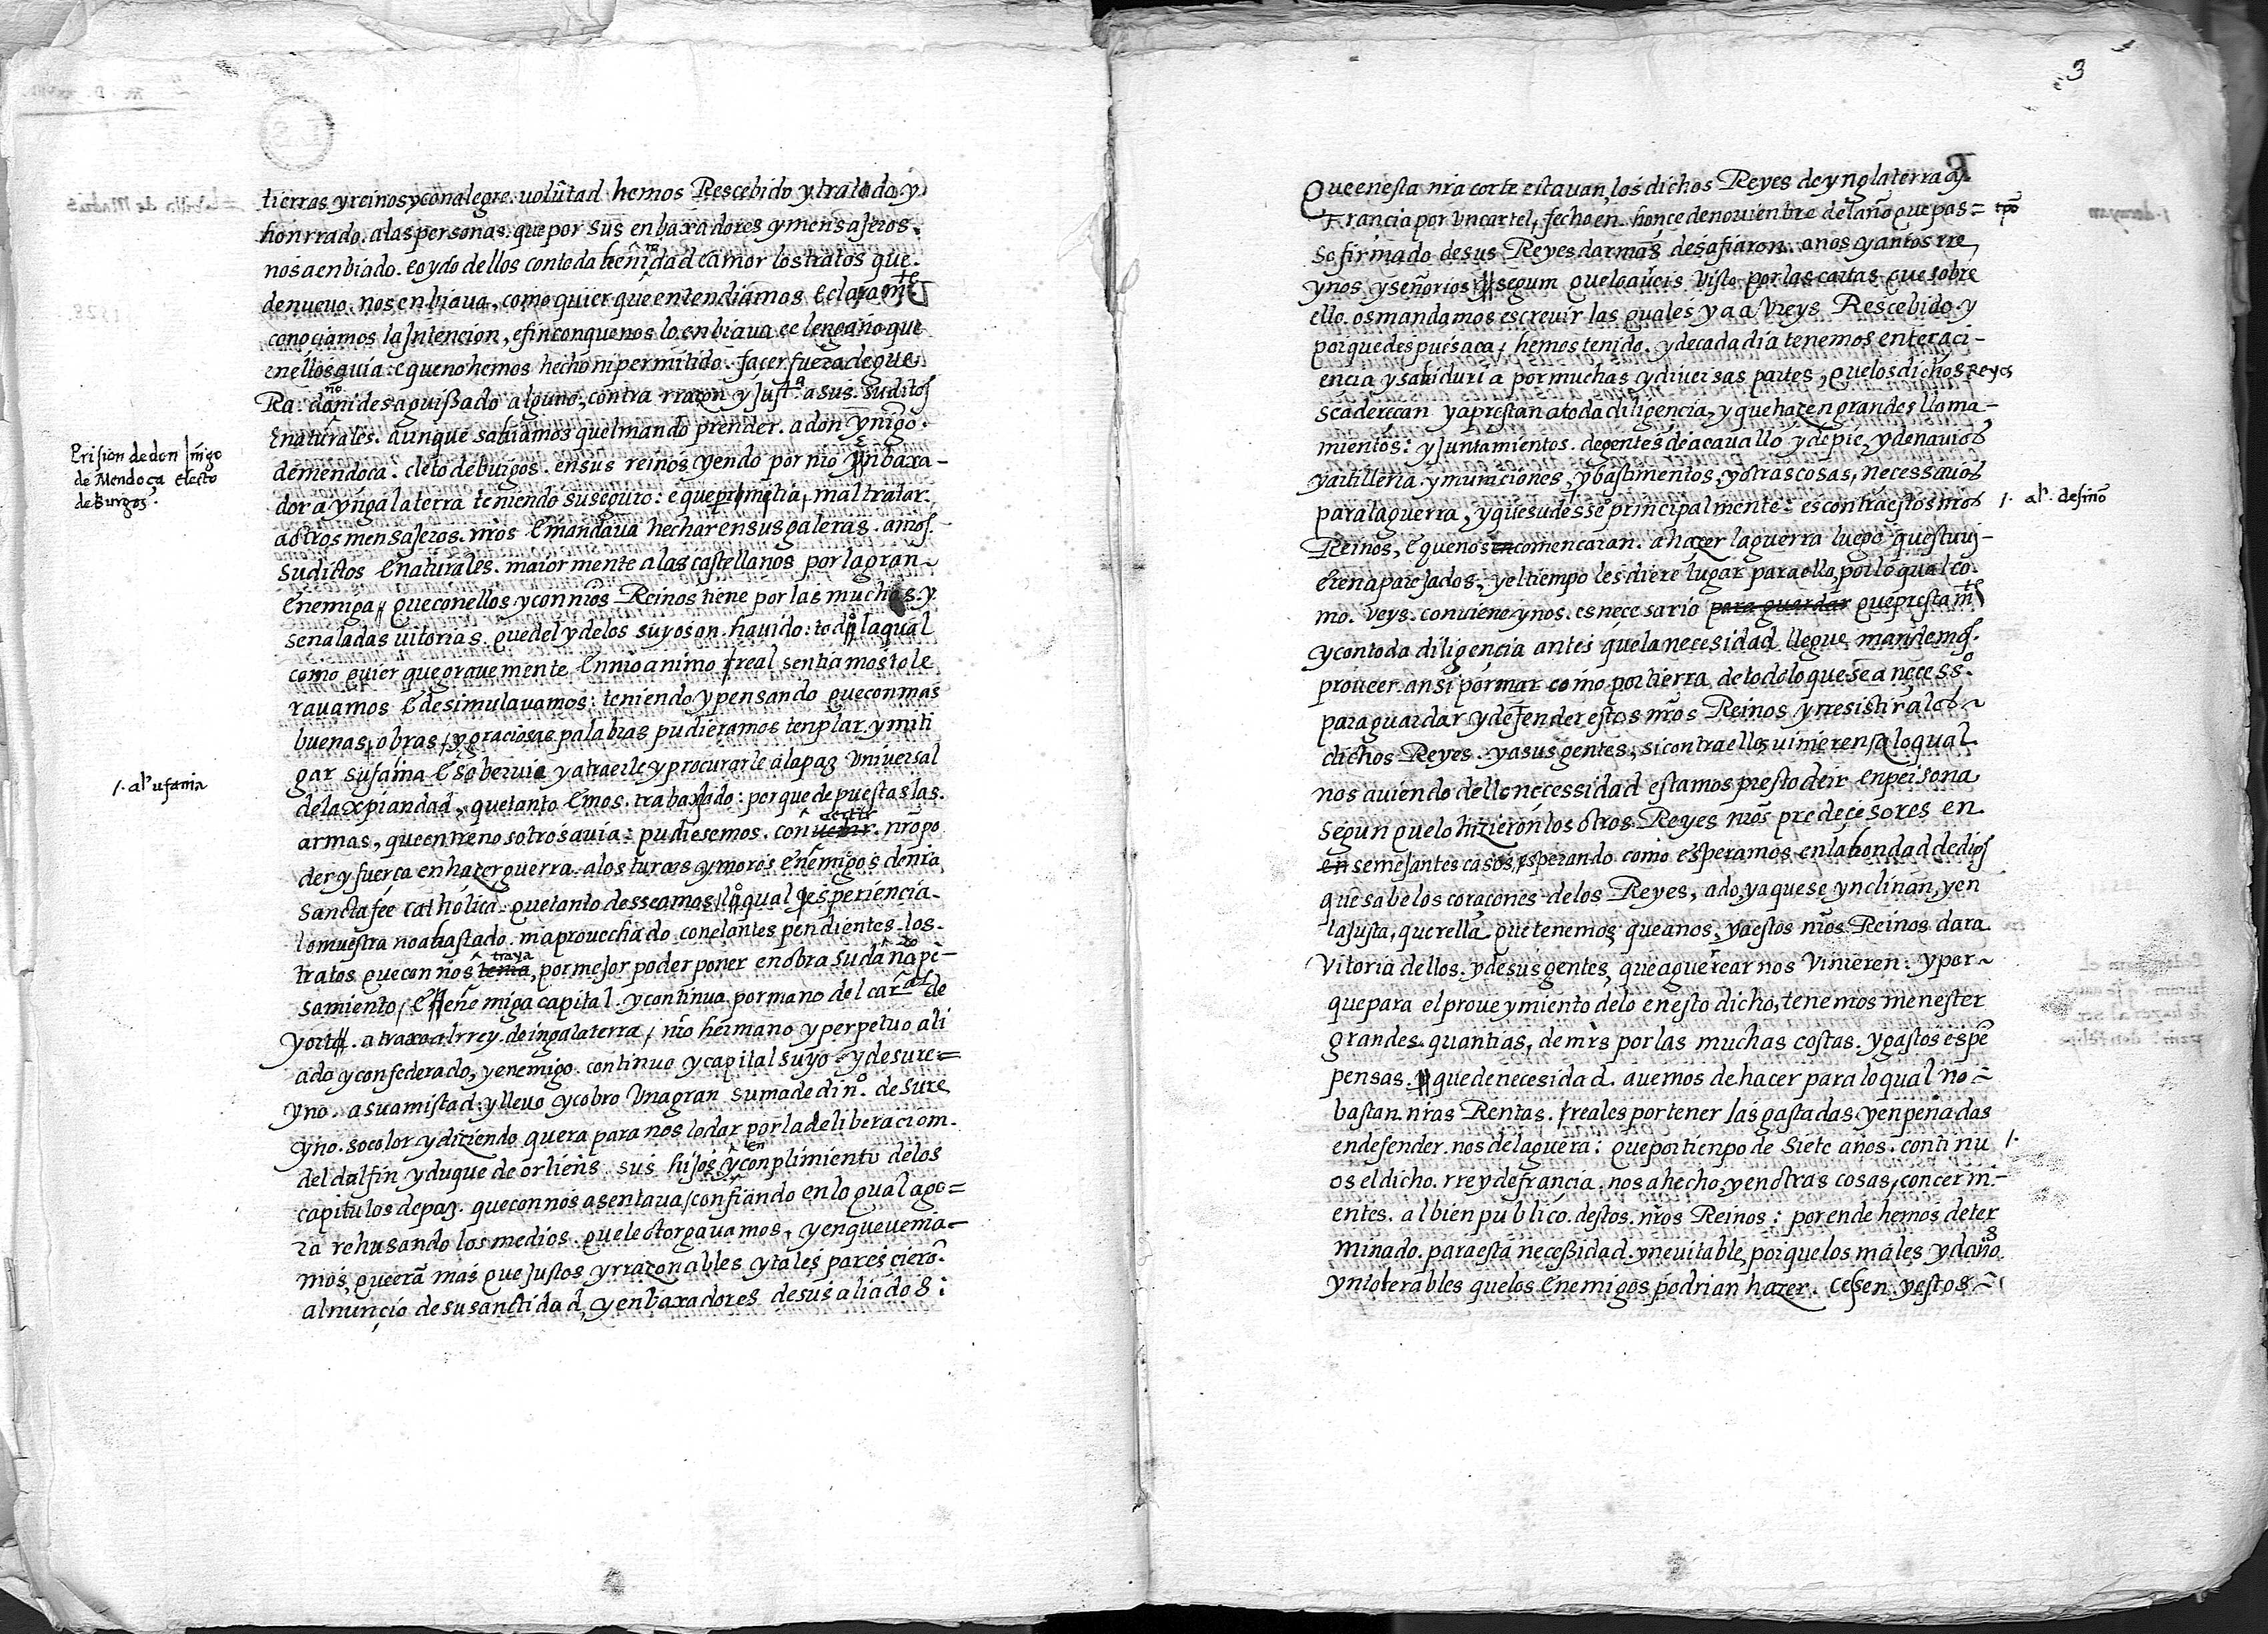 tierras y reinos y con alegre voluntad hemos Rescebido y tratado y
honrrado. a las personas. que por sus enbaxadores y mensajeros.
nos a enbiado. e oydo dellos con toda benidad e amor los tratos que.
de nuevo. nos enbiaua, como quier que entendiamos e claramte
conociamos la Intencion, e fin con que nos lo enbiaua e el engaño que
enellos guia: e que no hemos hecho ni permitido. facer fuera de gue
Ra. daño ni desaguissado alguno, contra rrazon y justa a sus. suditos
E naturales. aunque sabiamos quel mando prender. a don ynigo.
Prision de don Inigo
de Mendoça electo
de Burgos.
de mendoca. eleto de burgos. en sus reinos yendo por nro enbaxa-
dor a yngalaterra teniendo su seguro: e que prometia, mal tratar.
a otros mensajeros. nros E mandaua hechar en sus galeras. a nros
sudictos E naturales. maiormente a las castellanos por la gran
Enemiga, que con ellos y con nros Reinos tiene por las muchas. y
señaladas vitorias. que del y de los suyos on. hauido: todo la qual
como quier que gravemente En nro animo rreal sentiamos tole
rauamos E desimulauamos: teniendo y pensando que con mas
buenas, obras, y graciosas palabras pudieramos tenplar. y miti
1. al' ufania
gar su saña E soberuia y atraerle y procurarle a la paz Universal
de la xpiandad, que tanto Emos. trabaxado: por que depuestas las.
armas, que entre nosotros auia: pudiesemos. convertir. nro po
der y fuerça en hazer guerra. a los turcos y moros enemigos de nra
sancta fee catholica. que tanto desseamos, lo qual esperiencia.
lo muestra no a bastado. ni aprovechado con el, antes pendientes los.
tratos que con nos traya, por mejor poder poner en obra su dañado pe-
samiento, E enemiga capital. y continua. por mano del caral de
yorca. atraxo al rrey. de ingalaterra, nro hermano y perpetuo ali
ado y confederado, y enemigo. continuo y capital suyo. y de su re=
yno. a su amistad: y lleuo y cobro Una gran suma de dino. de su re
yno. so color y diziendo. quera para nos lo dar por la deliberacion.
del dalfin y duque de orliens sus hijos y en conplimiento de los
capitulos de paz. que con nos asentaua, confiando en lo qual ago=
ra rehusando los medios. que le otorgauamos, y en que venia-
mos, que eran mas que justos y rrazonables y tales parescieron.
al nuncio de su sanctidad, y enbaxadores de sus aliados:
3
Que en esta nra corte estauan, los dichos Reyes de ynglaterra y
Francia por Un cartel, fecho en. honce de nouienbre del año que pas= tpo
so firmado de sus Reyes darmas desafiaron. a nos y a nros rre
ynos y señorios segun que lo aureis Visto por las cartas que sobre
ello. os mandamos escreuir las quales ya aVreys Rescebido. y
por que despues aca, hemos tenido. y de cada dia tenemos enteraci-
encia y sabiduria por muchas y diversas partes, que los dichos Reyes
se aderecan y aprestan a toda diligencia, y que hazen grandes llama-
mientos: y Juntamientos. de gentes de a cauallo y de pie, y de nauios
y artilleria. y municiones, y bastimentos, y otras cosas, necessarios
para la guerra, y que su desse principalmente: es contra estos nros 1. al'. desino
Reinos, E que nos en comencaran. a hazer la guerra luego questuvi-
eren aparejados, y el tiempo les diere lugar para ello, por lo qual co.
mo. Veys. conviene y nos. es necesario para guardar que prestamte
y con toda diligencia antes que la necesidad llegue mandemos.
proueer ansi por mar como por tierra de todo lo que sea necesso.
para guardar y defender estos nros Reinos y rresistir a los
dichos Reyes. y a sus gentes, si contra ellos vinieren, a lo qual
nos auiendo dello necessidad estamos presto de ir en persona
segun que lo hizieron los otros Reyes nros predecesores en
en semejantes casos, esperando como esperamos en la bondad de dios
que sabe los coraçones de los Reyes, ado, y a que se ynclinan, y en
la justa, querella que tenemos que a nos, y a estos nros Reinos dara
Vitoria dellos. y de sus gentes, que a guerrear nos Vinieren: y por
que para el proveymiento de lo en esto dicho, tenemos menester
grandes. quantias, de mrs por las muchas costas. y gastos espe
pensas. que de necesidad. auemos de hacer para lo qual no
bastan. nras Rentas. rreales por tener las gastadas y enpeñadas
en defender. nos de la guera: que por tienpo de siete años. continu 1.
os el dicho. rrey de francia. nos a hecho, y en otras cosas, concerni-
entes. al bien publico. destos. nros Reinos: por ende hemos deter
minado. para esta necessidad. ynevitable, por que los males y daños.
yntolerables que los Enemigos podrian hazer. cesen y estos